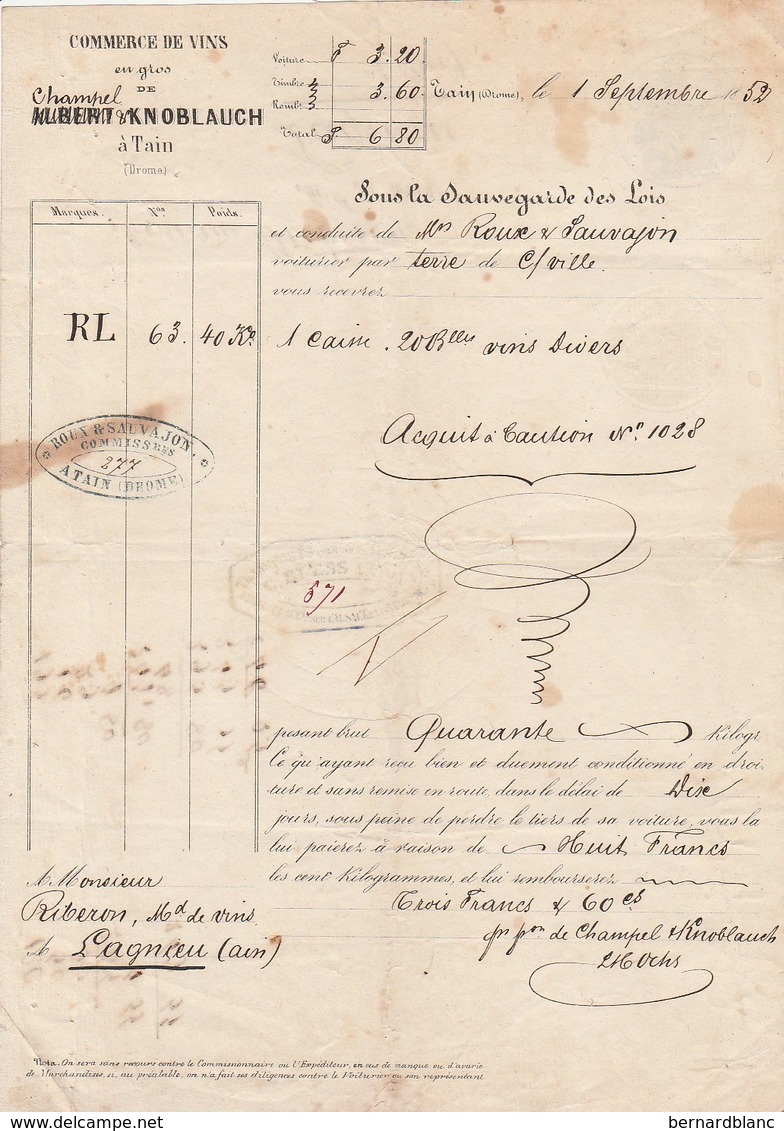 COMMERCE DE VINS
en gros
DE
Champel
& KNOBLAUCH
à Tain
(Drome)
Voiture F 3. 20.
Timbre
Remb.t 3. 60.
Total F. 6 80
Tain (Drome), le 1 Septembre 1852
Sous la Sauvegarde des Lois
et conduite de Mrs Roux & Sauvajon
voiturier par terre de C/ ville.
vous recevrez
Marques. Nos Poids.
RL 63. 40 Ko. 1 Caisse. 20 Blles vins Divers
Acquit à Caution No 1028
ROUX & SAUVAJON,
COMMISSRES
277
A TAIN (DROME)
571
pesant brut Quarante Kilogr.
Ce qu'ayant reçu bien et duement conditionné en droi-
ture et sans remise en route, dans le délai de Dix
jours, sous peine de perdre le tiers de sa voiture, vous la
lui paierez à raison de Huit Francs
les cent Kilogrammes, et lui rembourserez
Trois Francs & 60 cs
A Monsieur
Riberon, Md de vins
A Lagnieu (ain)
pr pon de Champel & Knoblauch
Ochs
Nota. On sera sans recours contre le Commissionnaire ou l'Expéditeur, en cas de manque ou d'avarie
de Marchandises, si, au préalable, on n'a fait ses diligences contre le Voiturier ou son représentant
bernardblanc